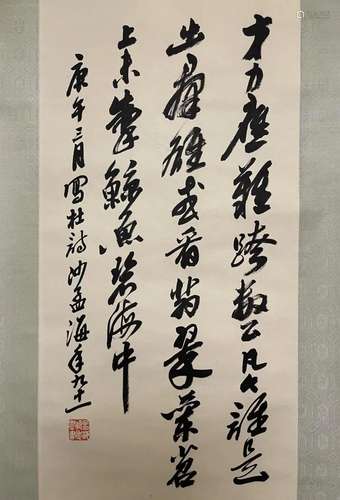 才力應難跨數公凡今誰是
出羣雄或看翡翠蘭苕
上未掣鯨魚碧海中
庚午三月寫杜詩沙孟海年九十一